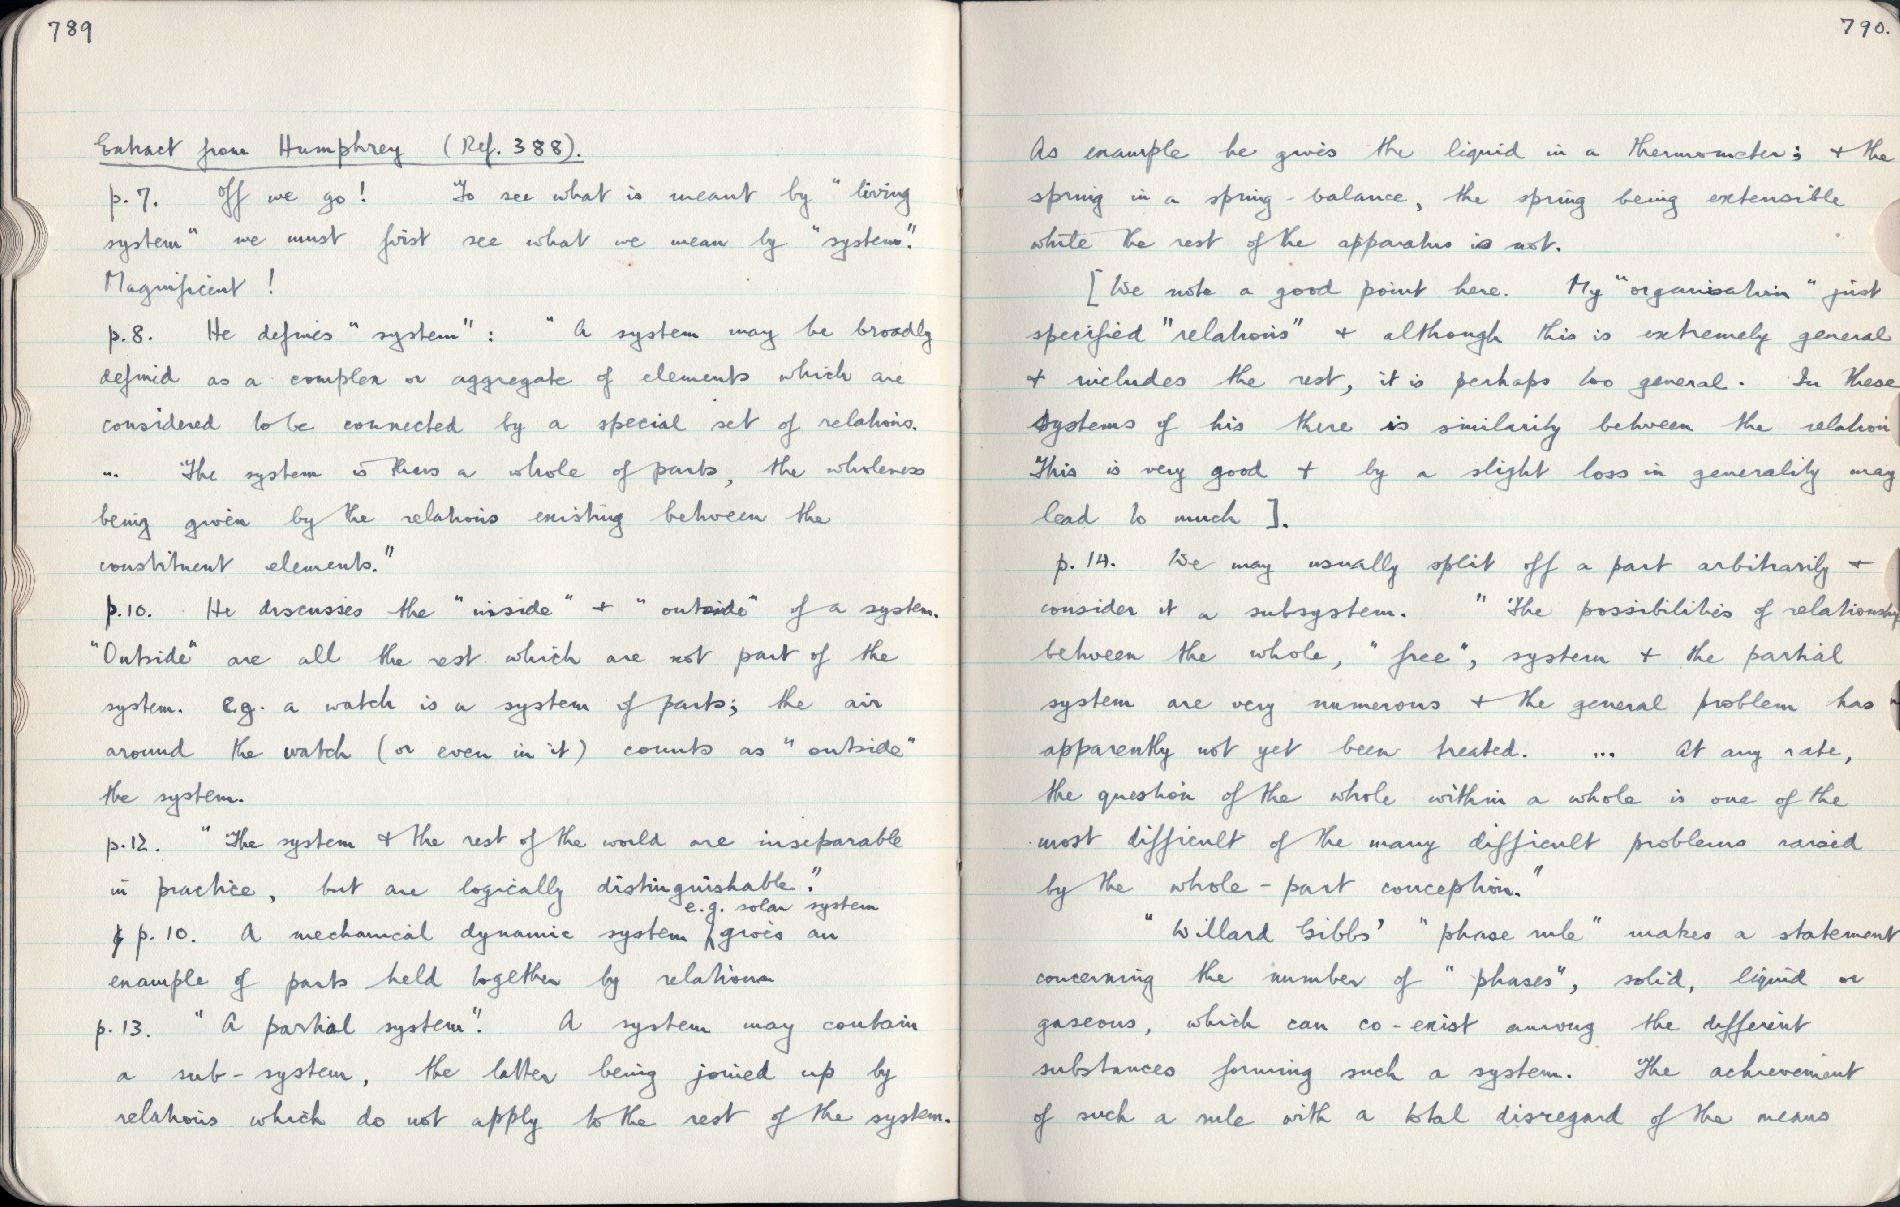 789
Extract from Humphrey (Ref. 388).
p. 7. Off we go! To see what is meant by "living
system" we must first see what we mean by "system".
Magnificent!
p. 8. He defines "system": "A system may be broadly
defined as a complex or aggregate of elements which are
considered to be connected by a special set of relations.
... The system is thus a whole of parts, the wholeness
being given by the relations existing between the
constituent elements."
p. 10. He discusses the "inside" + "outside" of a system.
"Outside" are all the rest which are not part of the
system. e.g. a watch is a system of parts; the air
around the watch (or even in it) counts as "outside"
the system.
p. 12. "The system + the rest of the world are inseparable
in practice, but are logically distinguishable."
e.g. solar system
p. 10. A mechanical dynamic system gives an
example of parts held together by relations
p. 13. "A partial system". A system may contain
a sub-system, the latter being joined up by
relations which do not apply to the rest of the system.
790.
As example he gives the liquid in a thermometer; + the
spring in a spring-balance, the spring being extensible
while the rest of the apparatus is not.
[We note a good point here. My "organisation" just
specified "relations" + although this is extremely general
+ includes the rest, it is perhaps too general. In these
systems of his there is similarity between the relation
This is very good + by a slight loss in generality may
lead to much].
p. 14. We may usually split off a part arbitrarily +
consider it a subsystem. "The possibilities of relationship
between the whole, "free", system + the partial
system are very numerous + the general problem has
apparently not yet been treated. ... At any rate,
the question of the whole within a whole is one of the
most difficult of the many difficult problems raised
by the whole-part conception."
"Willard Gibbs' "phase rule" makes a statement
concerning the number of "phases", solid, liquid or
gaseous, which can co-exist among the different
substances forming such a system. The achievement
of such a rule with a total disregard of the means